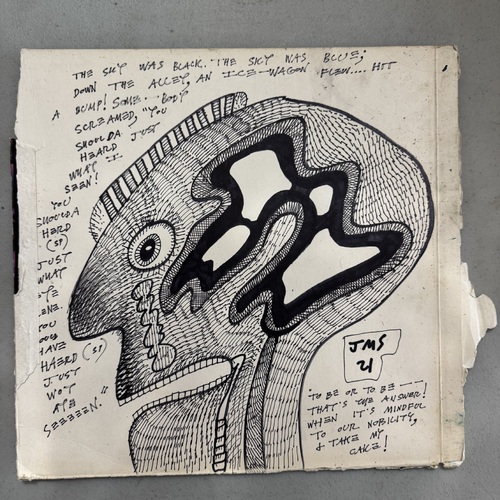 THE SKY WAS BLACK.. THE SKY WAS BLUE;
DOWN THE ALLEY, AN ICE-WAGON FLEW.... HIT
A BUMP! SOME-BODY
SCREAMED, "YOU
SHOULDA
HEARD JUST
WHAT I
SEEN!
YOU
SHOULDA
HERD
(SP)
JUST
WHAT
EYE
ENE.
YOU
HAVE
HAERD (SP)
JUST
WOT
AYE
SEEEEEN."
JMS
21
"TO BE OR TO BE —
THAT'S THE ANSWER!
WHEN IT'S MINDFUL
TO OUR NOBILITY,
& TAKE MY
CAKE!